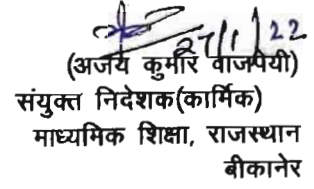 27/1/22
(अजय कुमार वाजपेयी)
संयुक्त निदेशक(कार्मिक)
माध्यमिक शिक्षा, राजस्थान
बीकानेर